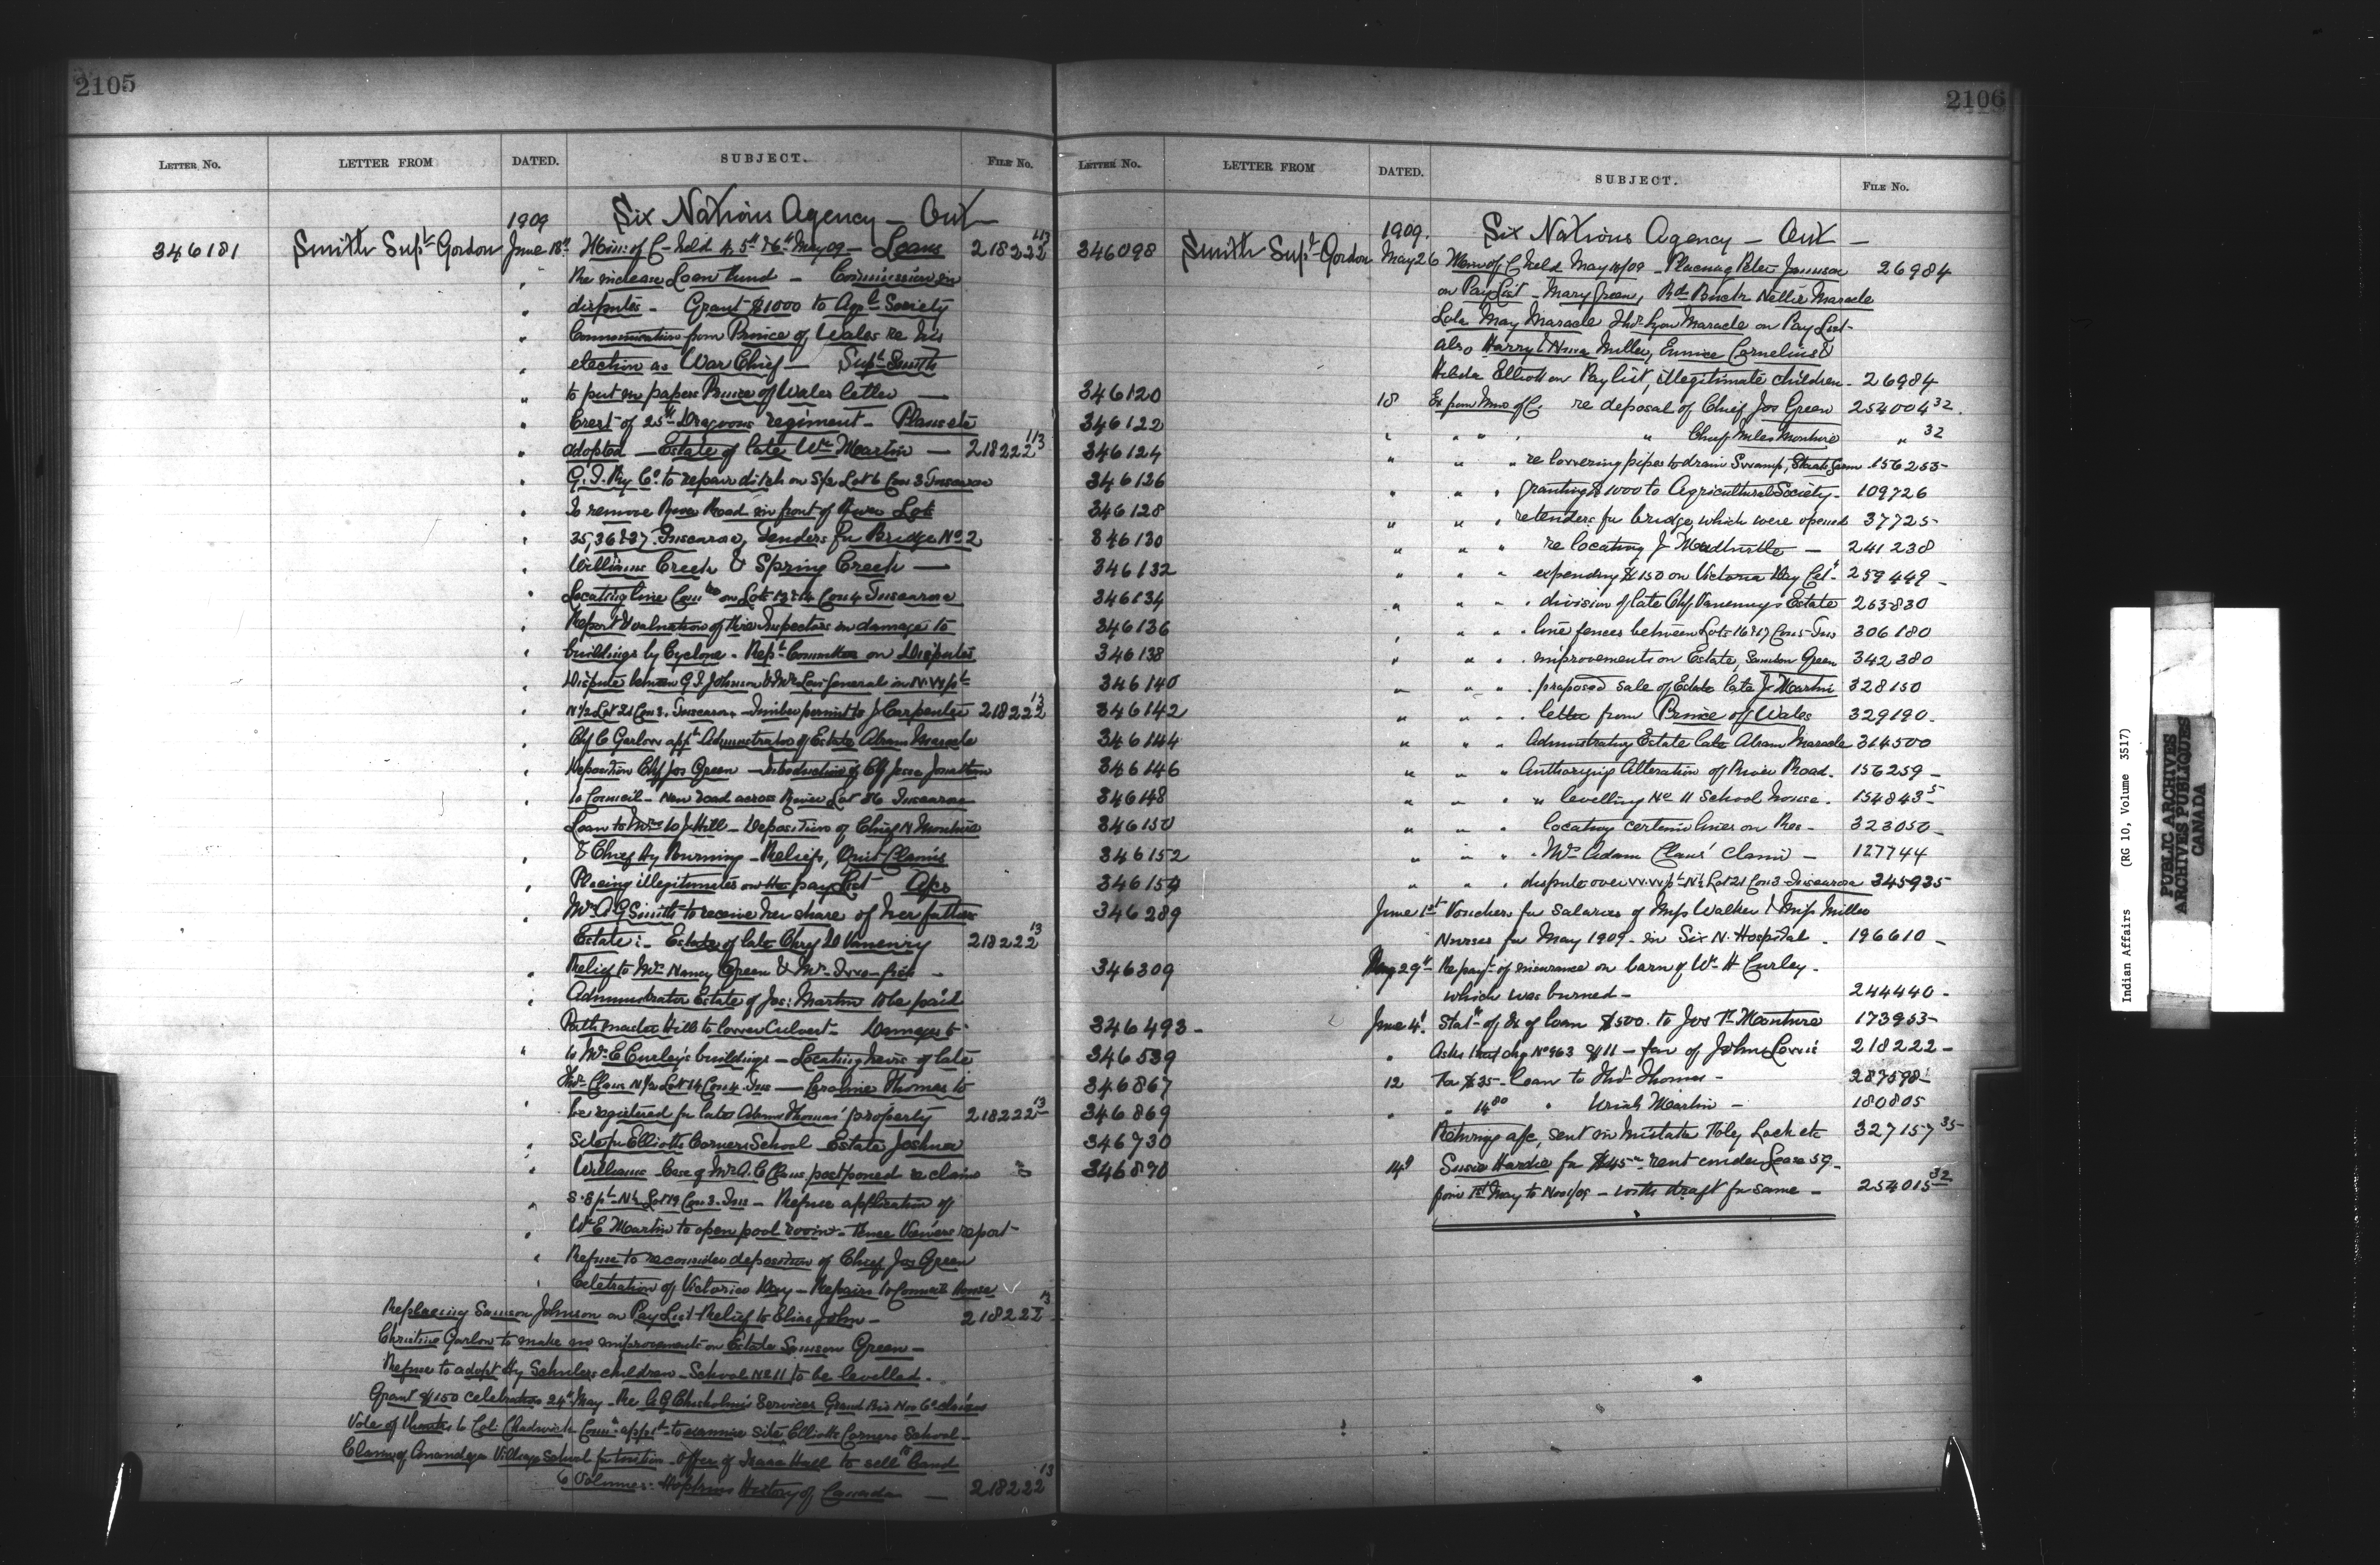 2105
LETTER No. LETTER FROM DATED. SUBJECT. FILE No.
Six Nations Agency — Ont
1909
346181 Smith Supt Gordon June 18th Min: of C— held 4, 5th & 6th May 09 — Loans 218222 113
Re increase Loan Fund — Commission in
" disputes — Grant $1000 to Agrl Society
" Communication from Prince of Wales re his
" election as War Chief — Supt Smith
" to put in papers Prince of Wales letter —
" Crest of 25th Dragoons regiment — Plans etc
" adopted — Estate of late Wm Martin — 218222 113
" G. T. Ry Co. to repair ditch on S½ Lot 6 Con 3 Tuscarora
" To remove River Road in front of River Lots
" 35, 36 & 37 Tuscarora, Tenders for Bridge No. 2
" Williams Creek & Spring Creek —
" Locating line on Lots 13 & 14 Con 4 Tuscarora
" Report & valuation of Fire Inspectors on damage to
" buildings by Cyclone — Rept Committee on Disputes
" Dispute between G. I. Johnson & Mrs Levi General in N.W. pt
" N½ Lot 21 Con 3. Tuscarora — Timber permit to J Carpenter 218222 13
" Chf C Garlow appt Administrator of Estate Abram Maracle
" Deposition Chf Jos Green — Introduction of Chf Jesse Jonathan
" to Council — New road across River Lot 86 Tuscarora
Loan to Mrs J. Hill — Deposition of Chief N Monture
" & Chief Hy Burning — Reliefs, Quit Claims
" Placing illegitimates on the pay List A/cs
" Mrs A G Smith to receive her share of her fathers
" Estate: — Estate of late Chry D Vanevery 218222 13
" Relief to Mrs Nancy Green & Mrs
" Administrator Estate of Jos: Martin to be paid
" Pathmaster Hill to lower Culvert — Damages to
" to Mrs E Curley's buildings — Locating heirs of late
" Thos. Claus N½ Lot 14 Con 4. Tus — Caroline Thomas to
" be registered for late Adam Thomas' property 218222 13
" Site for Elliotts Corners School — Estate Joshua
" Williams — Case of Mrs A. C Claus postponed re claim
" S. E pt N½ Lot 19 Con 3. Tus — Refuse application of
" Wm E Martin to open pool room — three Viewers report —
" Refuse to reconsider deposition of Chief Jos Green
Celebration of Victoria Day — Repairs to Council House
Replacing Samson Johnson on Pay List — Relief to Elias John — 218222 13
Christine Garlow to make no improvements on Estate Samson Green —
Refuse to adopt Hy Schuler's children — School No 11 to be levelled.
Grant $150 celebration 24th May — Re A G Chisholm's services Grand Riv Nav Co claims
Vote of thanks to Col: Chadwick Comtee appt to examine site Elliotts Corners School —
Claim of Onondaga Village School for tuition — offer of Isaac Hall to sell to Band
6 Volumes: Hopkins History of Canada — 218222 13
2106
LETTER No. LETTER FROM DATED. SUBJECT. FILE No.
1909. Six Nations Agency — Ont —
346098 Smith Supt Gordon May 26 Min of C held May 18/09 — Placing Peter Jamieson 26984
on Pay List — Mary Green, Rd Buck Nellie Maracle
Lola May Maracle Thos Lyon Maracle on Pay List —
also Harry & Nina Miller, Eunice Cornelius &
Hilda Elliott on Pay list, illegitimate children — 26984
346120 18 Ex from Min of C. re deposal of Chief Jos Green 254004 32.
346122 " " " Chief Miles Monture " 32
346124 " " " re lowering pipes to drain Swamp, Staats farm 156253 —
346126 " " " granting $1000 to Agricultural Society — 109726
346128 " " " re tenders for bridge, which were opened 37725 —
346130 " " " re locating J Madturtle — 241238
346132 " " " expending $150 on Victoria Day Celn 259449 —
346134 " " " division of late Chf Vanevery's Estate 263830
346136 " " " line fences between Lots 16 & 17 Con 5 Tus 306180
346138 " " " improvements on Estate, Samson Green 342380
346140 " " " proposed sale of Estate late J Martin 328150
346142 " " " letter from Prince of Wales 329190 —
346144 " " " Administrating Estate late Abram Maracle 314500
346146 " " " Authorizing Alteration of River Road. 156259 —
346148 " " " " levelling No 11 School house. 154843 5
346150 " " " locating certain lines on Res — 323050 —
346152 " " " Mrs Adam Claus' claim — 127744
346154 " " " dispute over N.W. pt N½ Lot 21 Con 3 — Tuscarora 345935
346289 June 1st Vouchers for salaries of Miss Walker & Miss Miller
Nurses for May 1909 — in Six N. Hospital — 196610 —
346309 May 29th Re payt of insurance on barn of Wm H Curley —
which was burned — 244440 —
346493 — June 4th Statt of a/c of loan $500. to Jos M Monture 173953 —
346539 " Asks that chq No 963 $11 — fav of John Lorrie 218222 —
346867 12 For $35 — loan to Thos Thomas — 287598 —
346869 " " 14 80 " Uriah Martin — 180805
346730 Returning a/c, sent in mistake Holy Lock etc 327157 35
346870 14th Susie Hardie for $45 — rent under Lease 59 —
from 1st May to Nov 1/09 — with draft for same — 254015 32
Indian Affairs (RG 10, Volume 3517)
PUBLIC ARCHIVES
ARCHIVES PUBLIQUES
CANADA